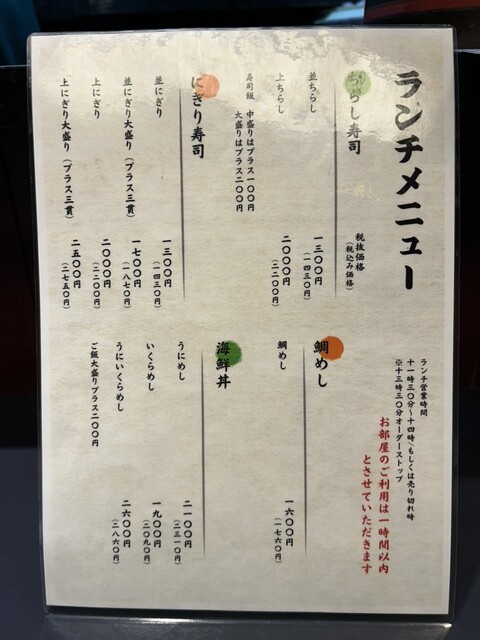 ランチメニュー
ランチ営業時間
十一時三〇分〜十四時\もしくは売り切れ時
※十三時三〇分オーダーストップ
お部屋のご利用は一時間以内
とさせていただきます
ちらし寿司
税抜価格
(税込み価格)
並ちらし 一三〇〇円
(一四三〇円)
上ちらし 二〇〇〇円
(二二〇〇円)
寿司飯 中盛りはプラス一〇〇円
大盛りはプラス二〇〇円
にぎり寿司
並にぎり 一三〇〇円
(一四三〇円)
並にぎり大盛り(プラス三貫) 一七〇〇円
(一八七〇円)
上にぎり 二〇〇〇円
(二二〇〇円)
上にぎり大盛り(プラス三貫) 二五〇〇円
(二七五〇円)
鯛めし
鯛めし 一六〇〇円
(一七六〇円)
海鮮丼
うにめし 二一〇〇円
(二三一〇円)
いくらめし 一九〇〇円
(二〇九〇円)
うにいくらめし 二六〇〇円
(二八六〇円)
ご飯大盛りプラス二〇〇円